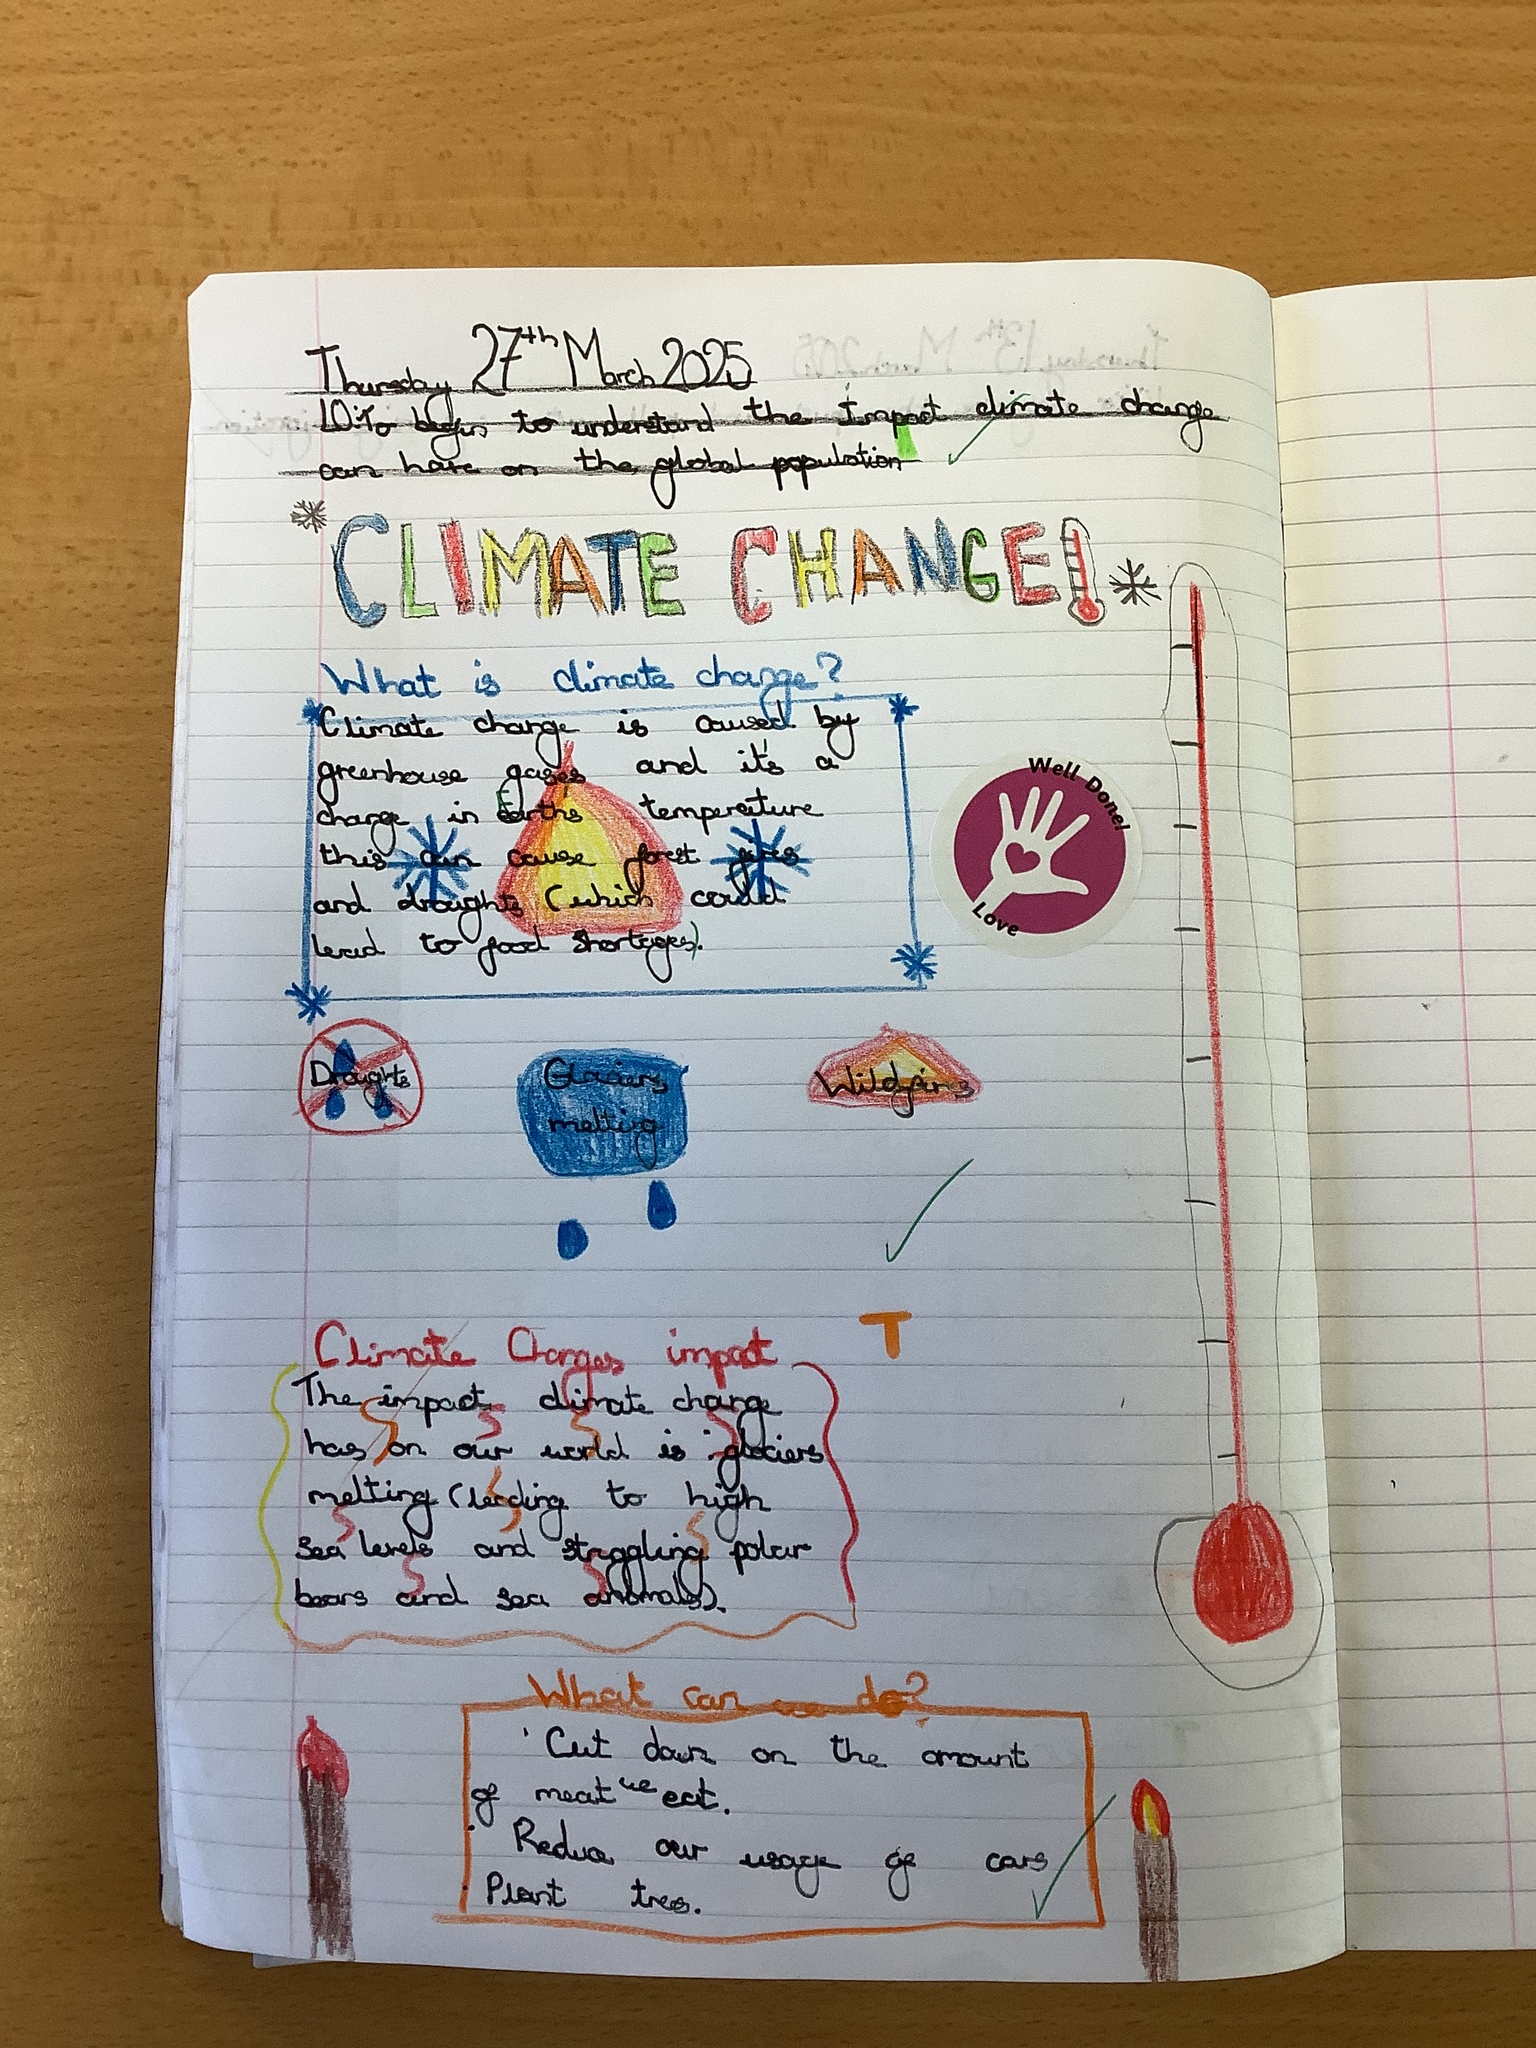 Thursday 27th March 2025
LO: To begin to understand the impact climate change
can have on the global population
CLIMATE CHANGE!
What is climate change?
Climate change is caused by
greenhouse gases and it's a
change in Earth's temperature
this can cause forest fires
and droughts (which could
lead to food shortages).
Well Done!
Love
Droughts
Glaciers
melting
Wildfires
T
Climate Changes impact
The impact climate change
has on our world is glaciers
melting (leading to high
sea levels and struggling polar
bears and sea animals).
What can we do?
Cut down on the amount
of meat we eat.
Reduce our usage of cars
Plant tres.